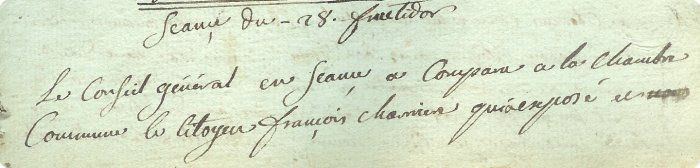 Seance du - 28. fructidor
Le Conseil général en Seance a Comparu a la Chambre
Commune le Citoyen françois charrier qui a exposé